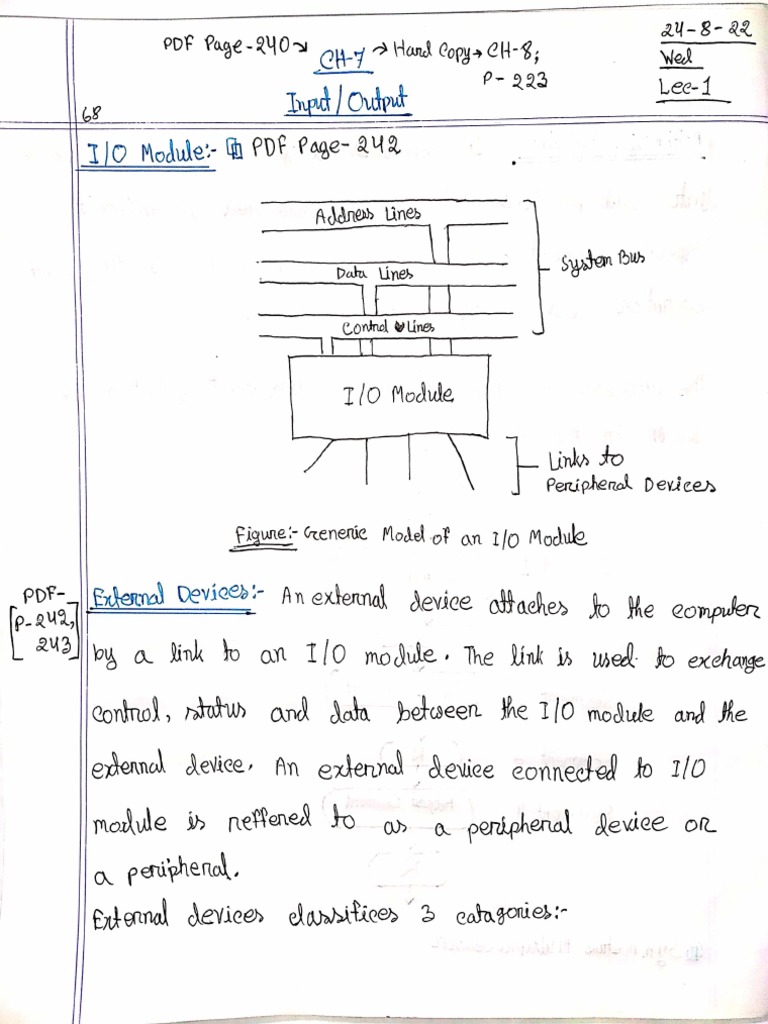 24-8-22
PDF Page-240↘ CH-7 → Hard Copy → CH-8;
Wed
P-223
Lec-1
Input/Output
68
I/O Module:- PDF Page-242
Address Lines
System Bus
Data Lines
Control Lines
I/O Module
Links to
Peripheral Devices
Figure:- Generic Model of an I/O Module
PDF-
[P-242,
243]
External Devices:- An external device attaches to the computer
by a link to an I/O module. The link is used to exchange
control, status and data between the I/O module and the
external device. An external device connected to I/O
module is reffered to as a peripheral device or
a peripheral.
External devices classifices 3 catagories:-